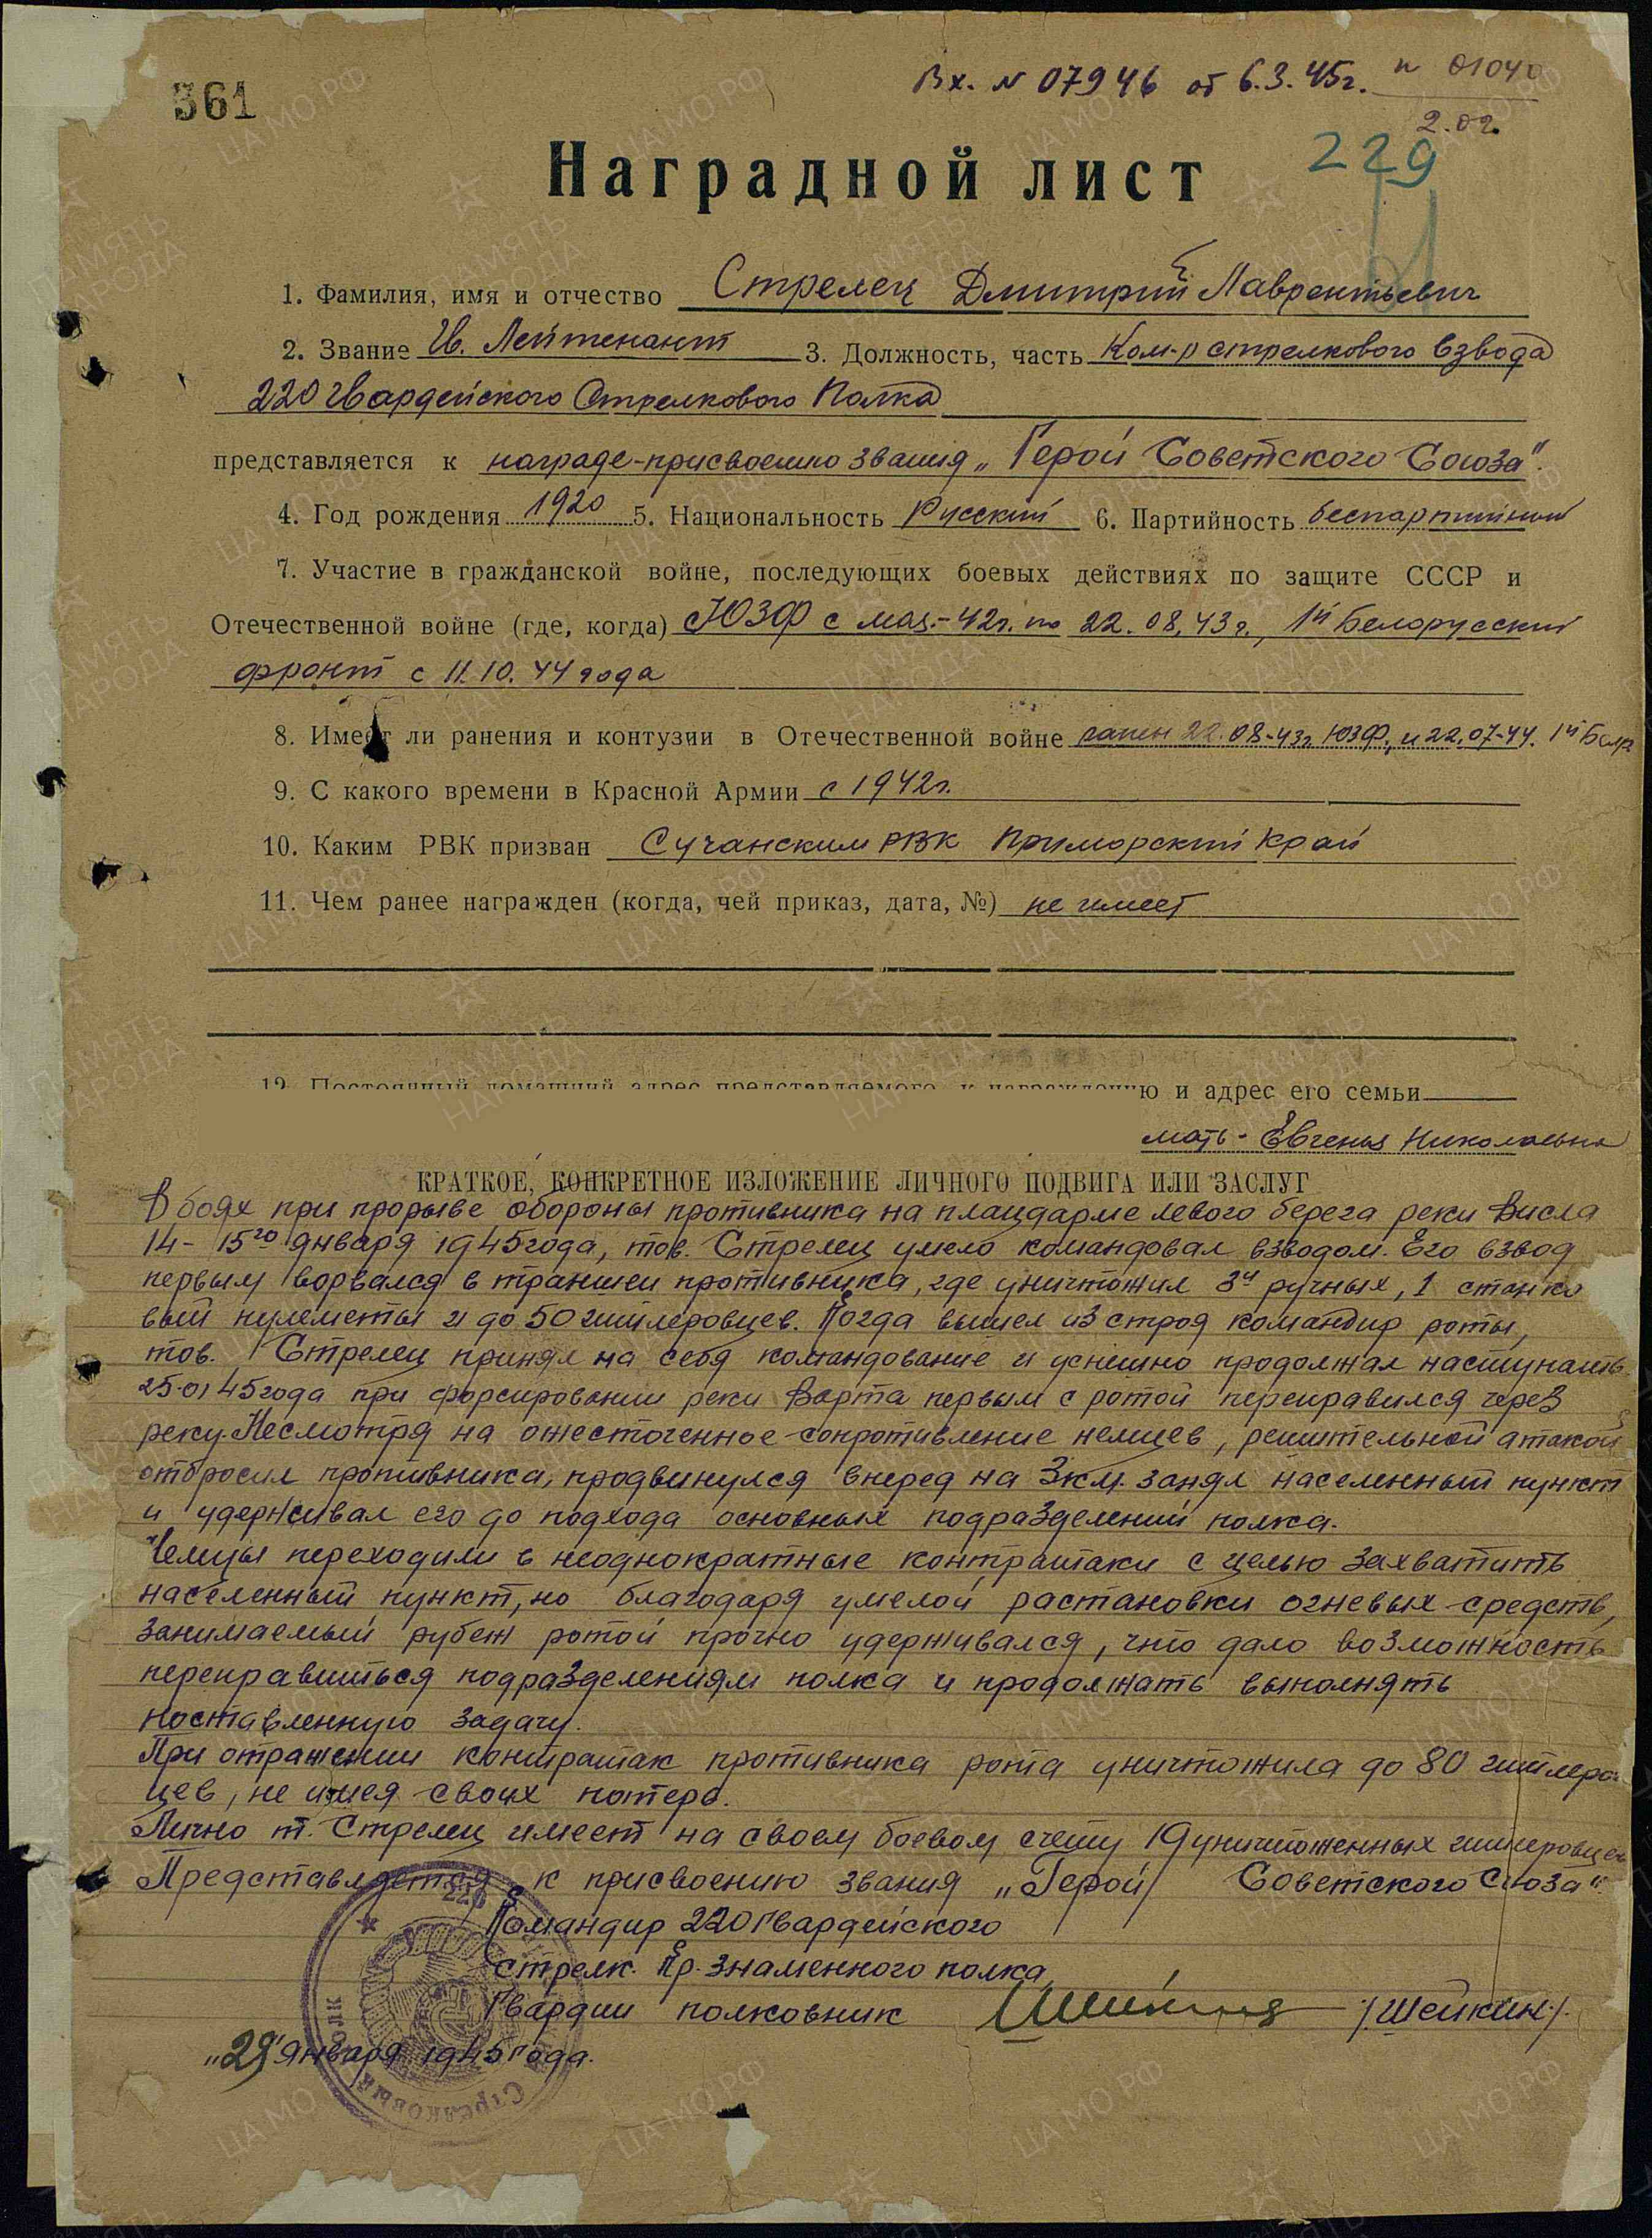 361
Вх. N 07946 от 6.3.45г. п 01040
2.02.
229
Наградной лист
1. Фамилия, имя и отчество Стрелец Дмитрий Лаврентьевич
2. Звание Гв. Лейтенант 3. Должность, часть Ком-р стрелкового взвода
220 гвардейского Стрелкового Полка
представляется к награде-присвоению звания „Герой Советского Союза".
4. Год рождения 1920 5. Национальность Русский 6. Партийность беспартийный
7. Участие в гражданской войне, последующих боевых действиях по защите СССР и
Отечественной войне (где, когда) ЮЗФ с мая-42г. по 22.08.43г., 1й Белорусский
фронт с 11.10.44 года
8. Имеет ли ранения и контузии в Отечественной войне ранен 22.08-43г. ЮЗФ, и 22.07-44. 1й Белр
9. С какого времени в Красной Армии с 1942г.
10. Каким РВК призван Сучанским РВК Приморский край
11. Чем ранее награжден (когда, чей приказ, дата, №) не имеет
12. Постоянный домашний адрес представляемого к награждению и адрес его семьи
мать - Евгения Николаевна
КРАТКОЕ, КОНКРЕТНОЕ ИЗЛОЖЕНИЕ ЛИЧНОГО ПОДВИГА ИЛИ ЗАСЛУГ
В боях при прорыве обороны противника на плацдарме левого берега реки Висла
14-15го января 1945 года, тов. Стрелец умело командовал взводом. Его взвод
первым ворвался в траншеи противника, где уничтожил 3и ручных, 1 станко
вый пулеметы и до 50 гитлеровцев. Когда вышел из строя командир роты,
тов. Стрелец принял на себя командование и успешно продолжал наступать.
25.01.45 года при форсировании реки Варта первым с ротой переправился через
реку. Несмотря на ожесточенное сопротивление немцев, решительной атакой
отбросил противника, продвинулся вперед на 3км. занял населенный пункт
и удерживал его до подхода основных подразделений полка.
Немцы переходили в неоднократные контратаки с целью захватить
населенный пункт, но благодаря умелой растановки огневых средств,
занимаемый рубеж ротой прочно удерживался, что дало возможность
переправиться подразделениям полка и продолжать выполнять
поставленную задачу.
При отражении контратак противника рота уничтожила до 80 гитлеров
цев, не имея своих потерь.
Лично т. Стрелец имеет на своем боевом счету 19 уничтоженных гитлеровцев
Представляется к присвоению звания „Герой Советского Союза"
Командир 220 Гвардейского
стрелк. Кр. Знаменного полка
Гвардии полковник /Шейкин/.
„29" января 1945 года.
220
Стрелковый полк
ПАМЯТЬ НАРОДА
ЦА МО РФ